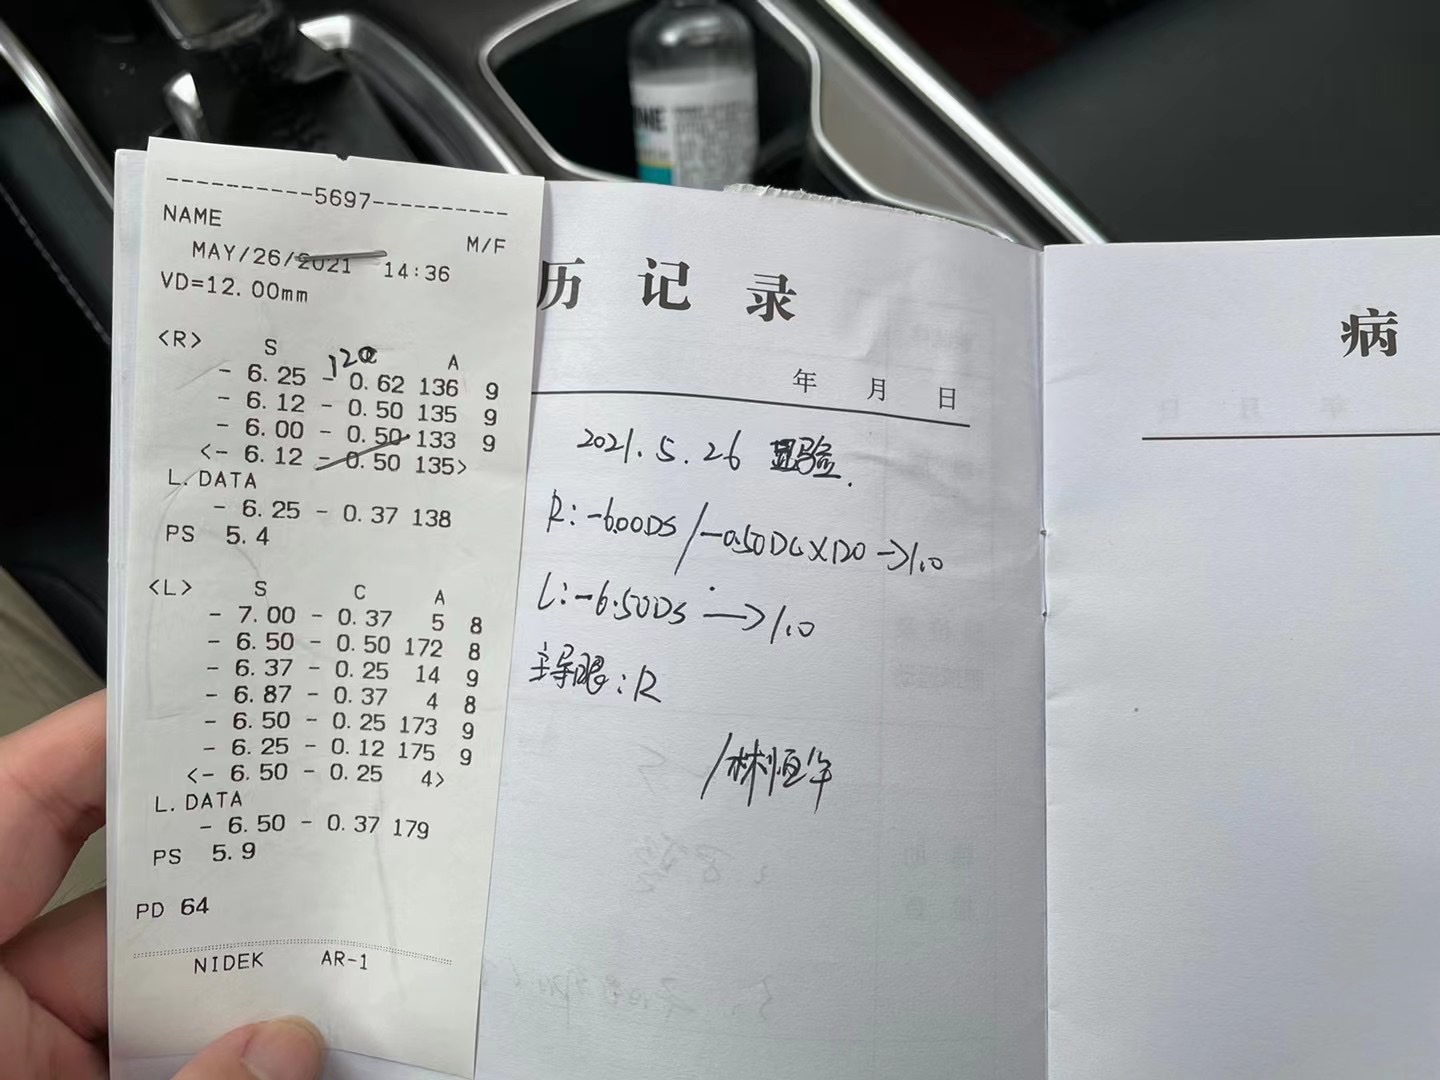 ----------5697----------
NAME M/F
MAY/26/2021 14:36
VD=12.00mm
<R> S A
120
- 6.25 - 0.62 136 9
- 6.12 - 0.50 135 9
- 6.00 - 0.50 133 9
<- 6.12 - 0.50 135>
L.DATA
- 6.25 - 0.37 138
PS 5.4
<L> S C A
- 7.00 - 0.37 5 8
- 6.50 - 0.50 172 8
- 6.37 - 0.25 14 9
- 6.87 - 0.37 4 8
- 6.50 - 0.25 173 9
- 6.25 - 0.12 175 9
<- 6.50 - 0.25 4>
L.DATA
- 6.50 - 0.37 179
PS 5.9
PD 64
NIDEK AR-1
历记录
年 月 日
2021.5.26 验.
R:-6.00DS/-0.50DC×120→1.0
L:-6.50DS→1.0
主导眼:R
/林恒
病
NE